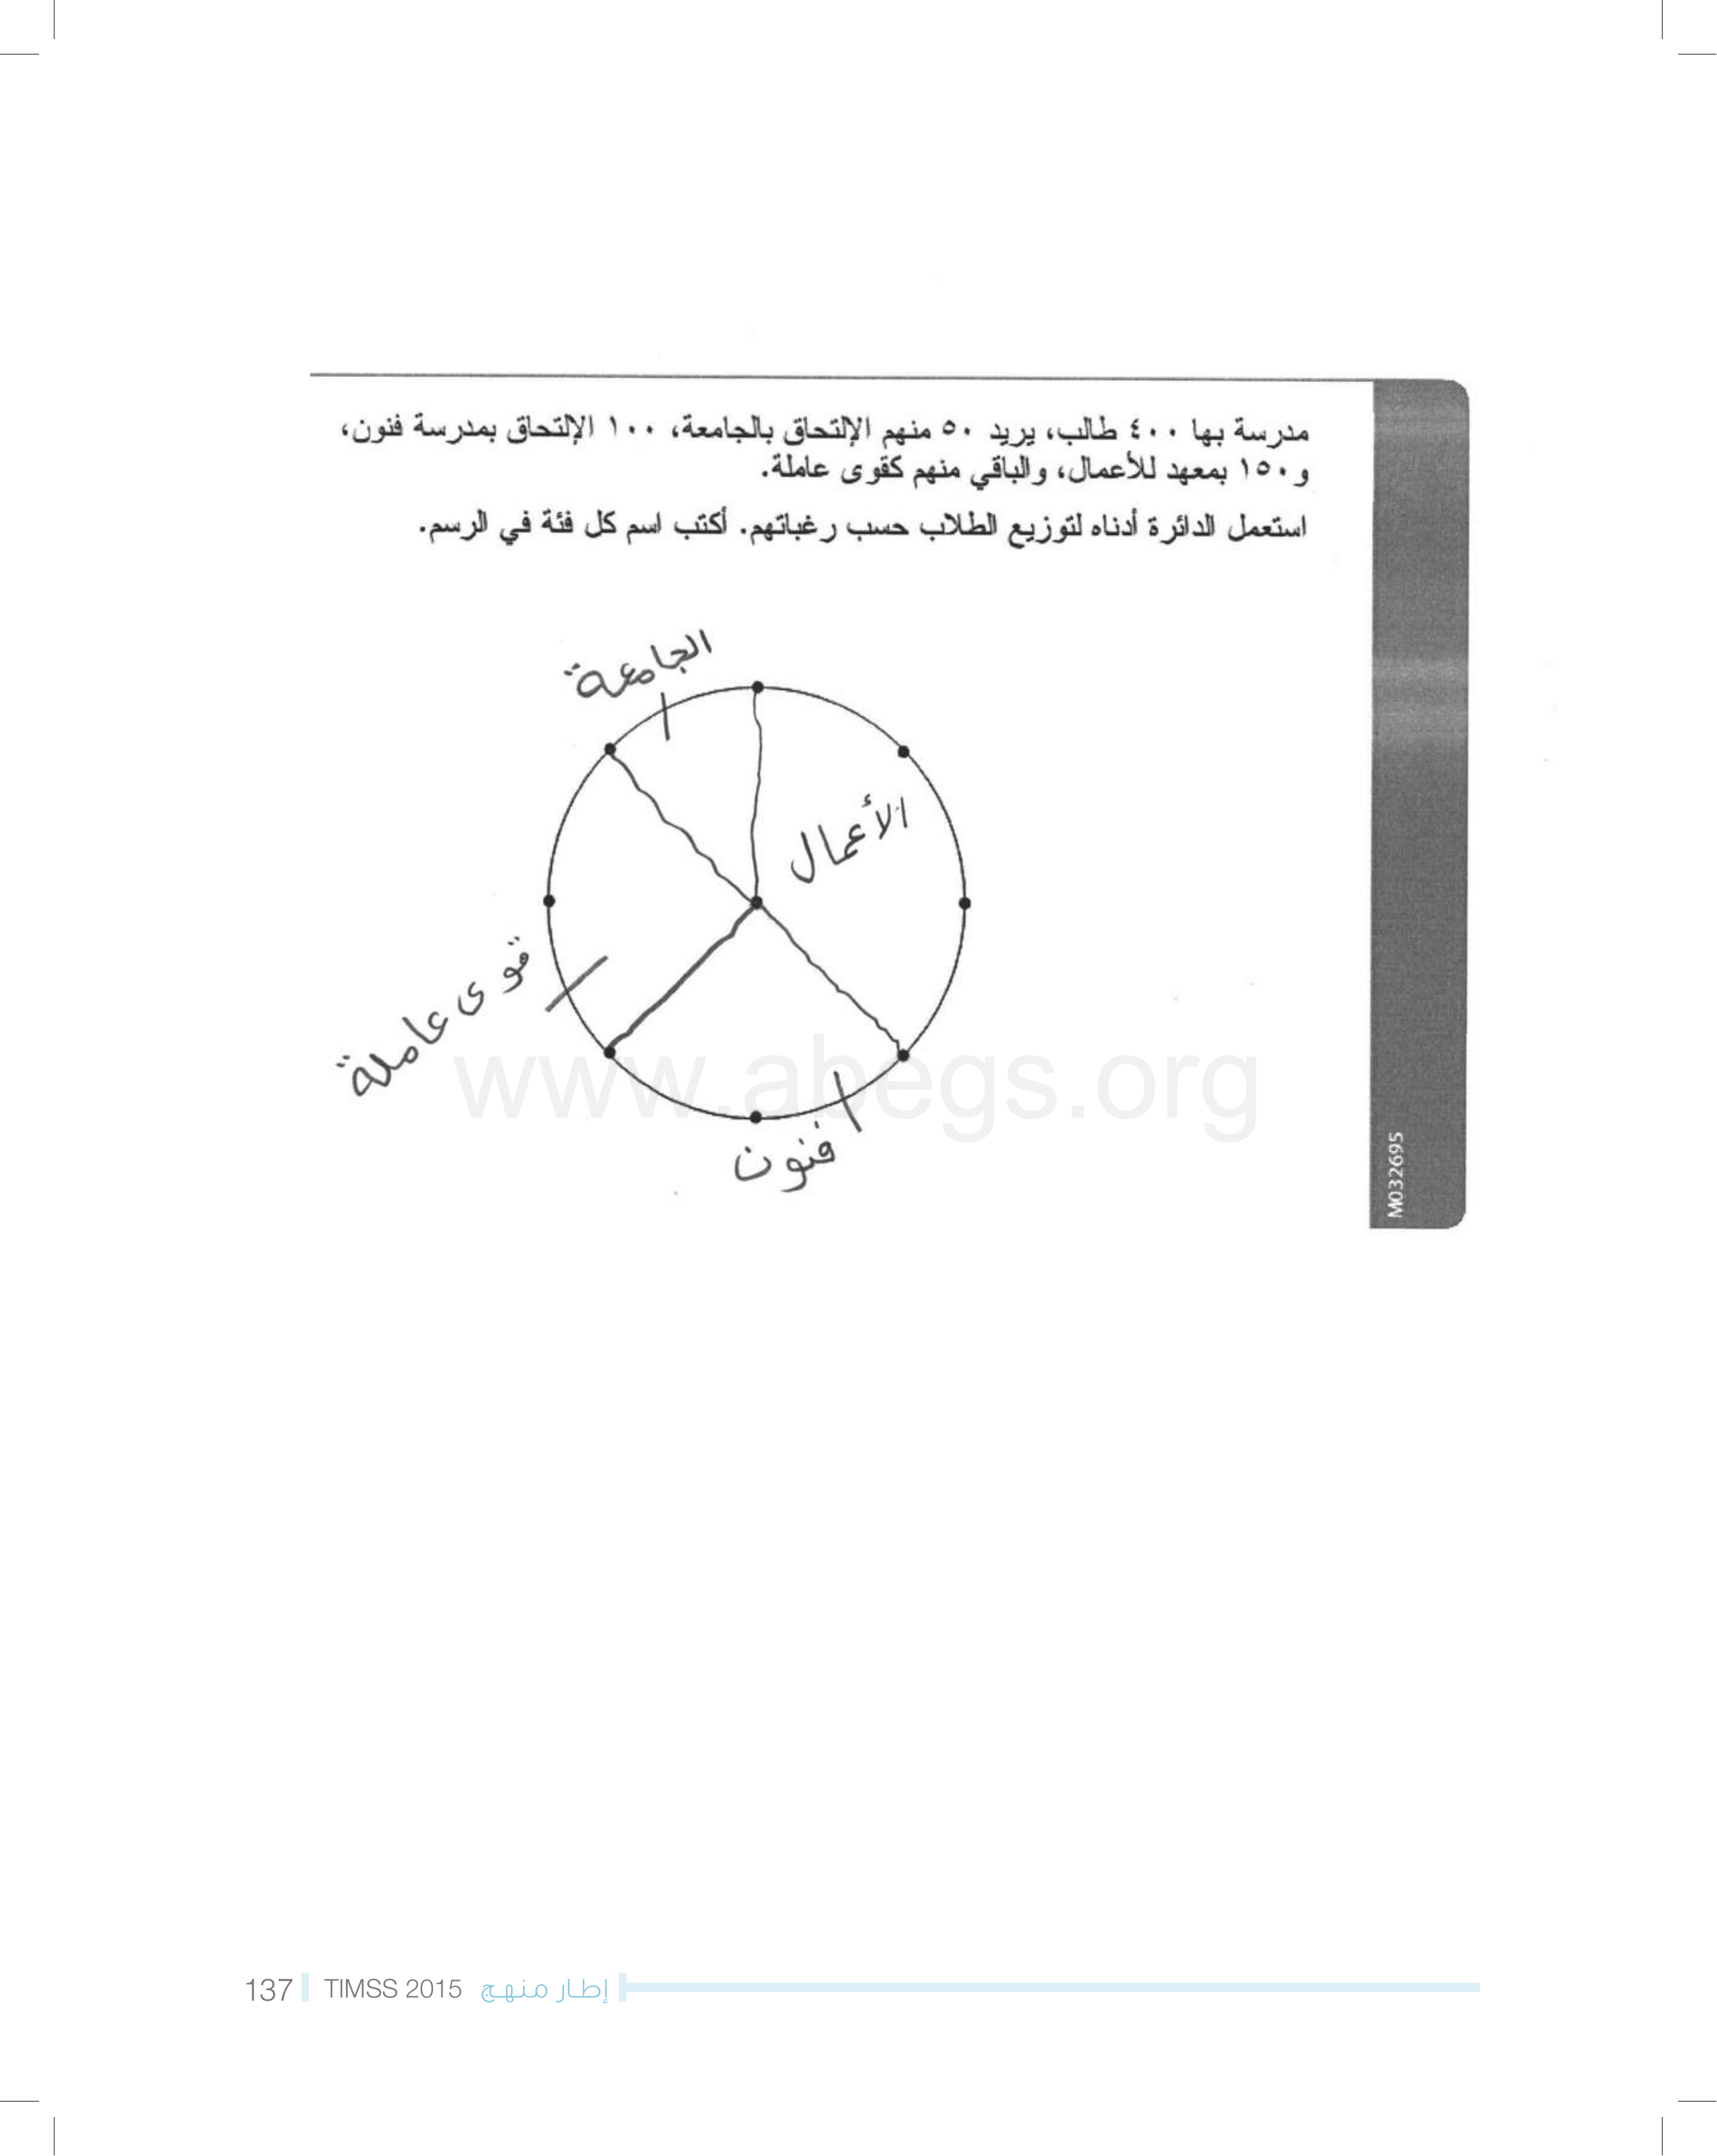 مدرسة بها ٤٠٠ طالب، يريد ٥٠ منهم الإلتحاق بالجامعة، ١٠٠ الإلتحاق بمدرسة فنون،
و١٥٠ بمعهد للأعمال، والباقي منهم كقوى عاملة.
استعمل الدائرة أدناه لتوزيع الطلاب حسب رغباتهم. أكتب اسم كل فئة في الرسم.
الجامعة
الأعمال
قوى عاملة
فنون
www.abegs.org
M032695
137 TIMSS 2015 إطار منهج